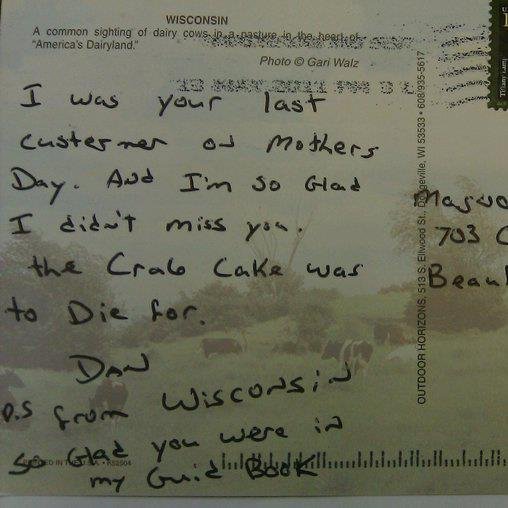 WISCONSIN
A common sighting of dairy cows in a pasture in the heart of
"America's Dairyland."
Photo © Gari Walz
13 MAY 2011 PM
I was your last
custermer on Mothers
Day. And I'm so Glad
I didn't miss you.
the Crab Cake was
to Die for.
Dan
P.S from Wisconsin
so Glad you were in
my Guid Book
703
OUTDOOR HORIZONS, 513 S. Ellwood St., Dodgeville, WI 53533 • 608/935-5617